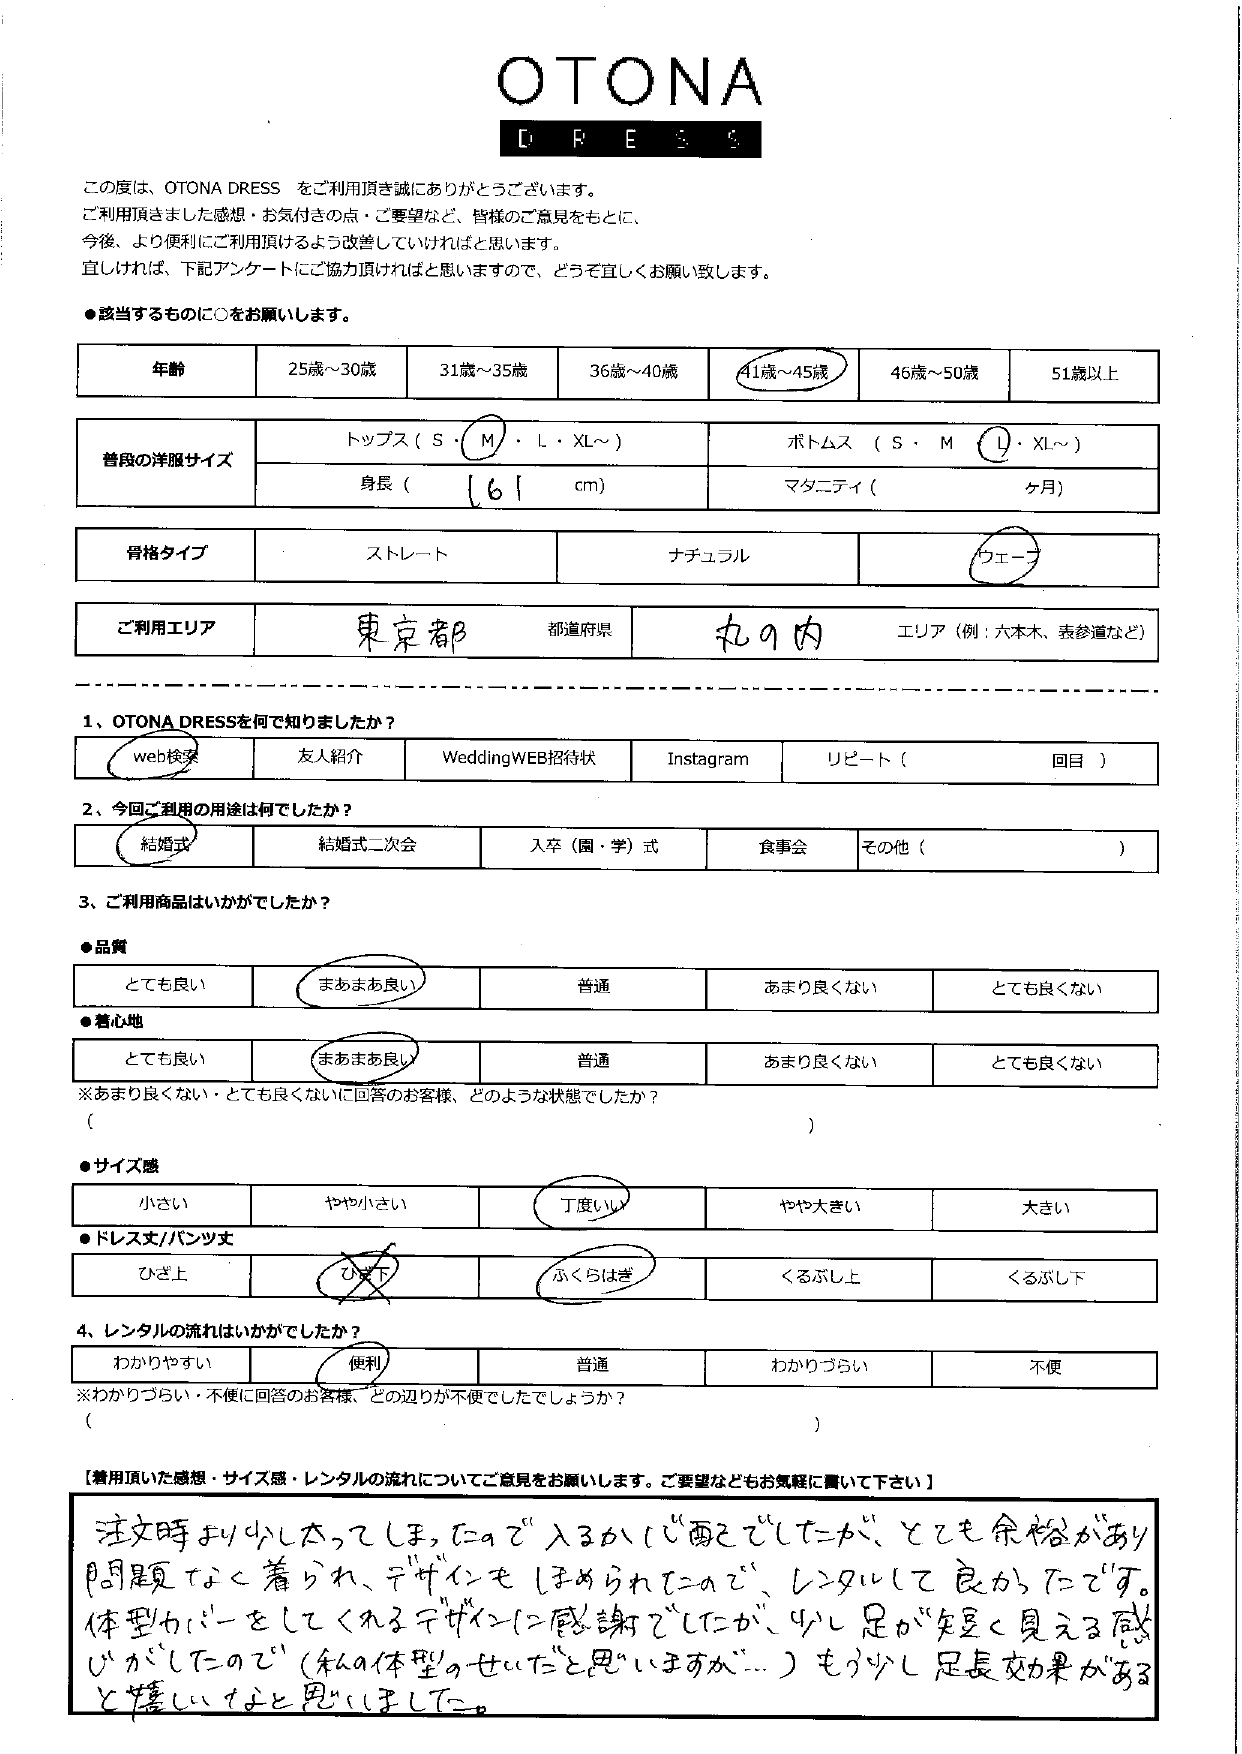 OTONA
DRESS
この度は、OTONA DRESS をご利用頂き誠にありがとうございます。
ご利用頂きました感想・お気付きの点・ご要望など、皆様のご意見をもとに、
今後、より便利にご利用頂けるよう改善していければと思います。
宜しければ、下記アンケートにご協力頂ければと思いますので、どうぞ宜しくお願い致します。
●該当するものに○をお願いします。
年齢 25歳～30歳 31歳～35歳 36歳～40歳 41歳～45歳 46歳～50歳 51歳以上
普段の洋服サイズ トップス ( S ・ M ・ L ・ XL～ ) ボトムス ( S ・ M ・ L ・ XL～ )
身長 ( 161 cm) マタニティ ( ヶ月)
骨格タイプ ストレート ナチュラル ウェーブ
ご利用エリア 東京都 都道府県 丸の内 エリア（例：六本木、表参道など）
1、OTONA DRESSを何で知りましたか？
web検索 友人紹介 WeddingWEB招待状 Instagram リピート ( 回目 )
2、今回ご利用の用途は何でしたか？
結婚式 結婚式二次会 入卒（園・学）式 食事会 その他 ( )
3、ご利用商品はいかがでしたか？
●品質
とても良い まあまあ良い 普通 あまり良くない とても良くない
●着心地
とても良い まあまあ良い 普通 あまり良くない とても良くない
※あまり良くない・とても良くないに回答のお客様、どのような状態でしたか？
( )
●サイズ感
小さい やや小さい 丁度いい やや大きい 大きい
●ドレス丈/パンツ丈
ひざ上 ひざ下 ふくらはぎ くるぶし上 くるぶし下
4、レンタルの流れはいかがでしたか？
わかりやすい 便利 普通 わかりづらい 不便
※わかりづらい・不便に回答のお客様、どの辺りが不便でしたでしょうか？
( )
【着用頂いた感想・サイズ感・レンタルの流れについてご意見をお願いします。ご要望などもお気軽に書いて下さい】
注文時より少し太ってしまったので入るか心配でしたが、とても余裕があり
問題なく着られ、デザインもほめられたので、レンタルして良かったです。
体型カバーをしてくれるデザインに感謝でしたが、少し足が短く見える感
じがしたので（私の体型のせいだと思いますが…）もう少し足長効果がある
と嬉しいなと思いました。